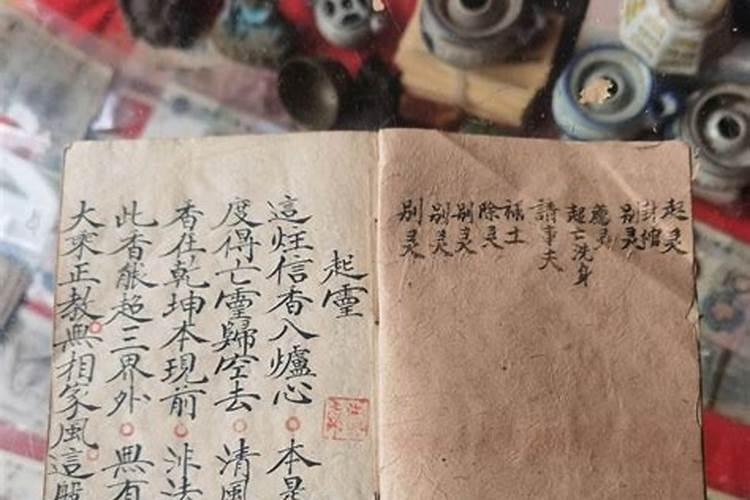 起灵
封棺
别灵
薦灵
起亡洗身
請事夫
禄土
除灵
别灵
别灵
别灵
起靈
這炷信香入爐心 本是
度得亡靈歸空去 清風
香在乾坤本現前 非法
此香能超三界外 無有
大乘正教無相家風這股